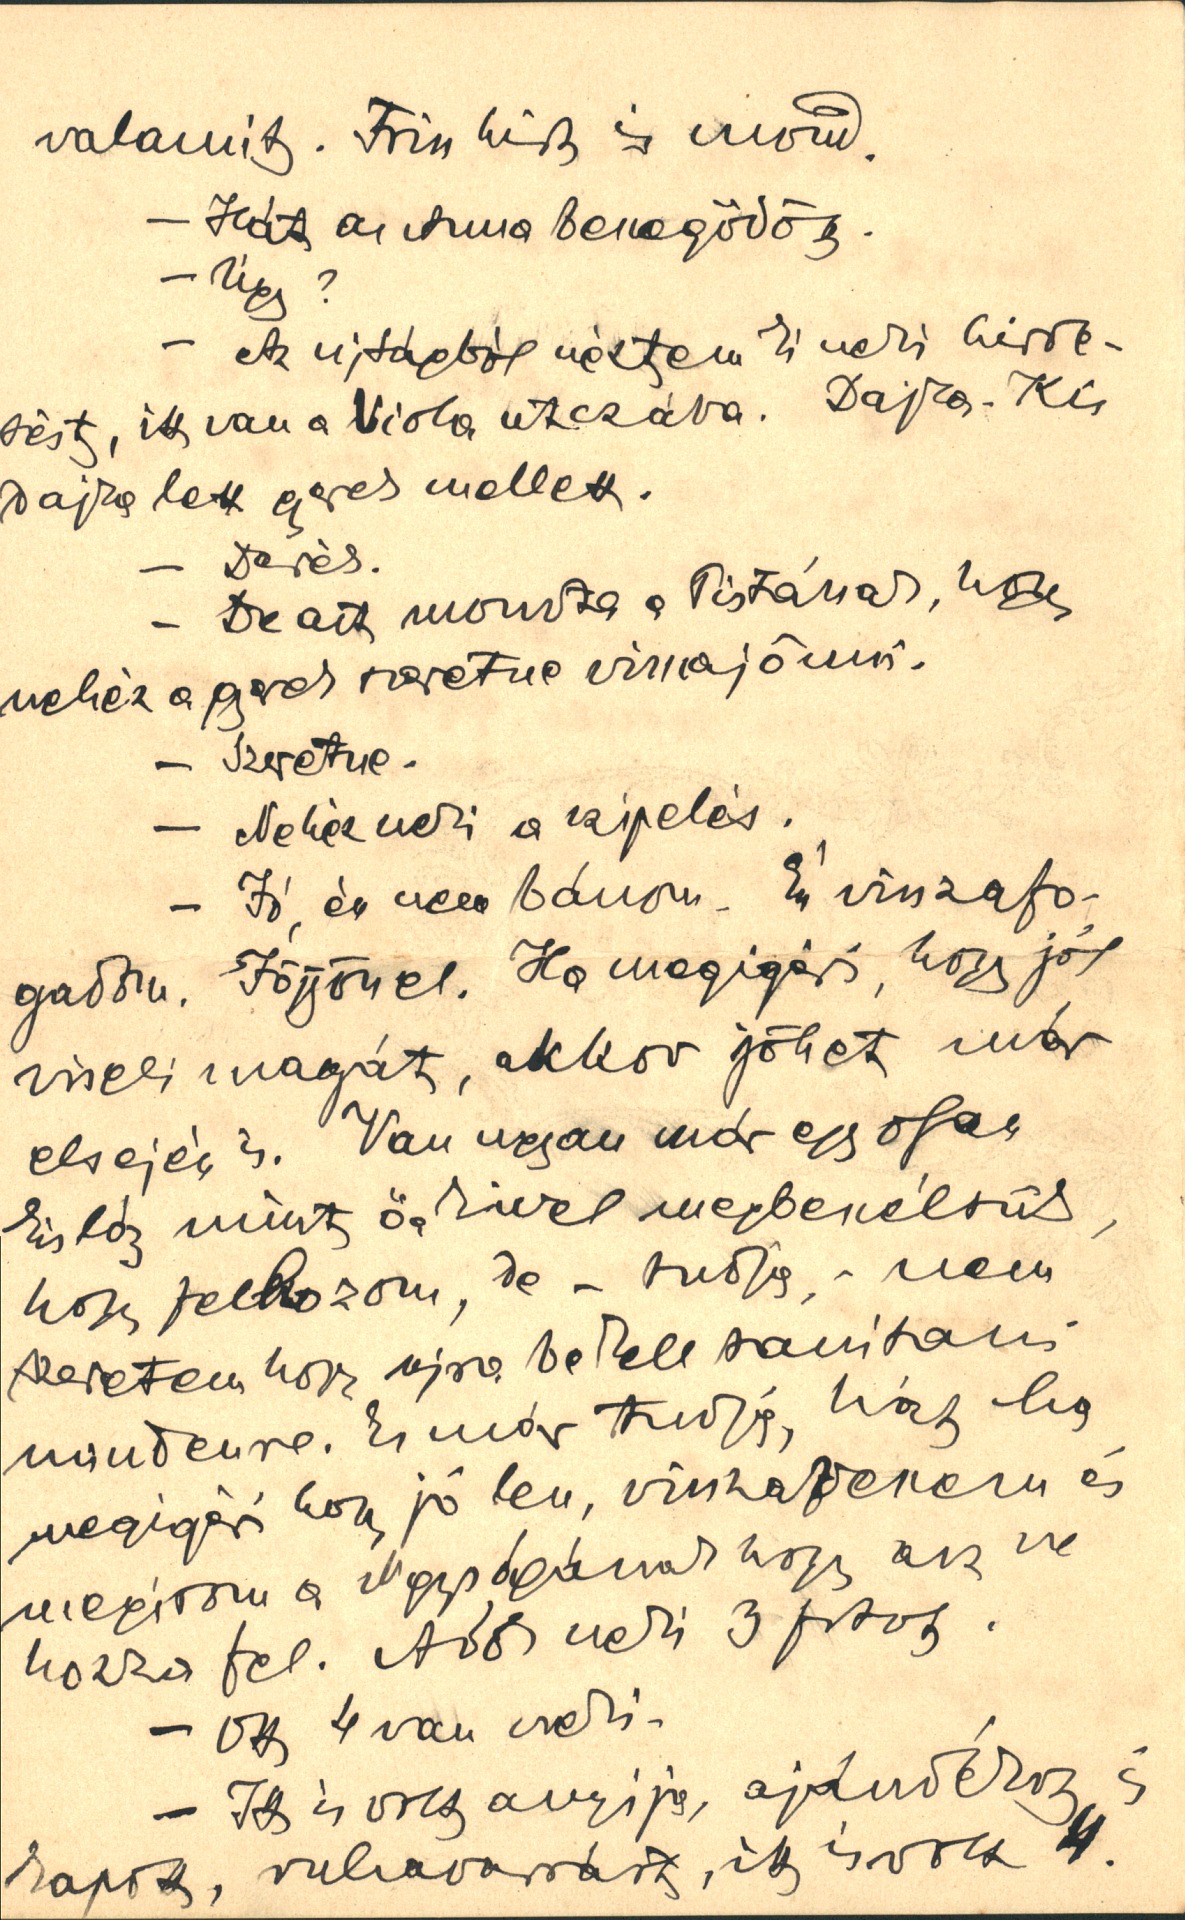 valamit. Friss hirt is mond.
— Hát az Anna beszegődött.
— Úgy?
— Az ujságból néztem ki neki hirde-
tést, itt van a Viola utczába. Dajka. Kis
dajka lett gyerek mellett.
— Derék.
— De azt mondta a Pistának, hogy
nehéz a gyerek szeretne visszajönni.
— Szeretne.
— Nehéz neki a czipelés.
— Jó, én nem bánom. Én visszafo-
gadom. Jöjjön el. Ha megigéri, hogy jól
viseli magát, akkor jöhet már
elsején is. Van ugyan már egy olyan
kis láz mint ő a kivel megbeszéltük,
hogy felhozom, de – tudja, – nem
szeretem hogy ujra be kell tanitani
mindenre. Ez már tudja, hát ha
megigéri hogy jó lesz, visszaveszem és
megirom a Nagyságának hogy azt ne
hozza fel. Adok neki 3 frtot.
— Ott 4 van neki.
— Itt is volt annyija, ajándékot is
kapott, ruhavarrást, itt is volt 4.